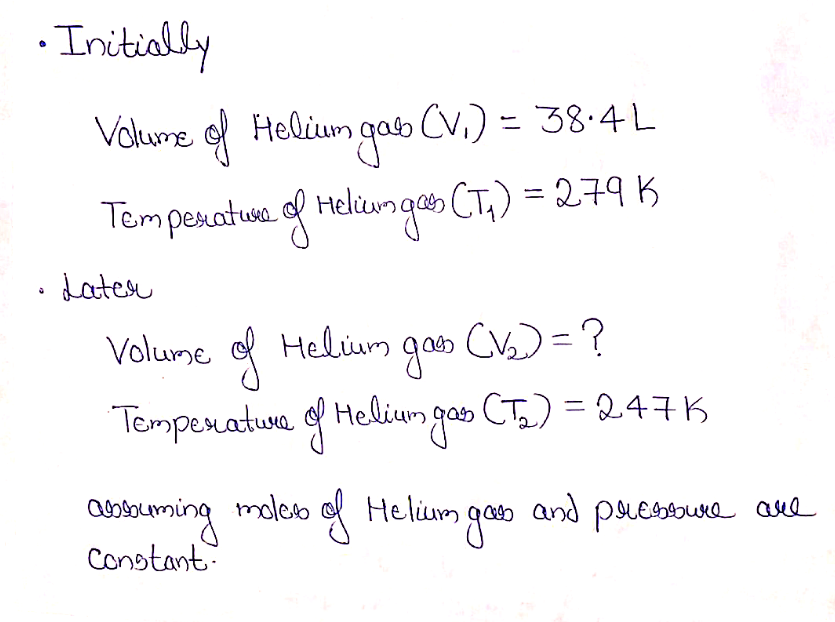 • Initially
Volume of Helium gas (V₁) = 38.4 L
Temperature of Helium gas (T₁) = 279 K
• Later
Volume of Helium gas (V₂) = ?
Temperature of Helium gas (T₂) = 247 K
assuming moles of Helium gas and pressure are
constant.